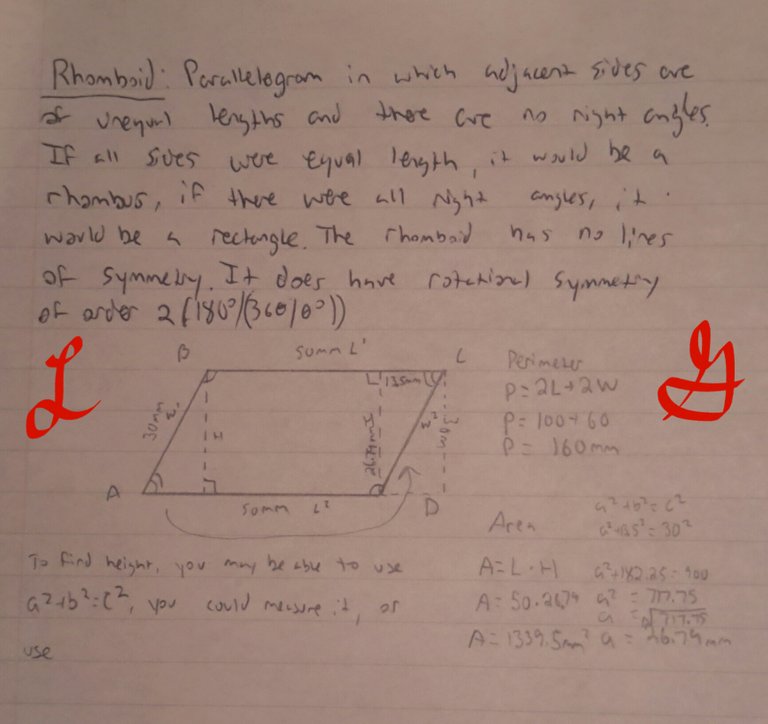 Rhomboid: Parallelogram in which adjacent sides are
of unequal lengths and there are no right angles.
If all sides were equal length, it would be a
rhombus, if there were all right angles, it
would be a rectangle. The rhomboid has no lines
of symmetry. It does have rotational symmetry
of order 2 (180°/(360/θ°))
L
G
B
50mm L¹
L
13.5mm
30mm
W¹
H
26.79mm
H
W²
30mm
A
50mm L²
D
Perimeter
P=2L+2W
P=100+60
P= 160mm
Area
A=L·H
A=50·26.79
A=1339.5mm²
a²+b²=c²
a²+13.5²=30²
a²+182.25=900
a²=717.75
a=√717.75
a=26.79mm
To find height, you may be able to use
a²+b²=c², you could measure it, or
use